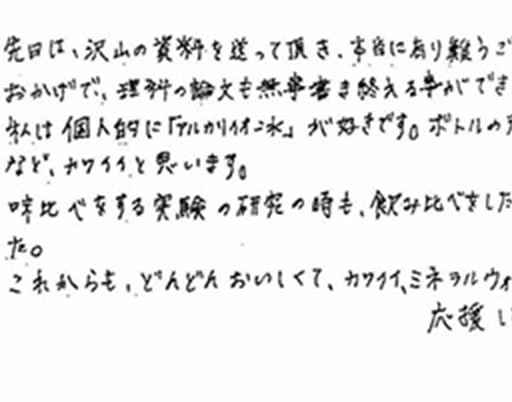 先日は、沢山の資料を送って頂き、本当に有り難うご
おかげで、理科の論文も無事書き終える事ができ
私は個人的に「アルカリイオン水」が好きです。ボトルの
など、カワイイと思います。
味比べをする実験の研究の時も、飲み比べをした
た。
これからも、どんどんおいしくて、カワイイ、ミネラルウォ
応援し